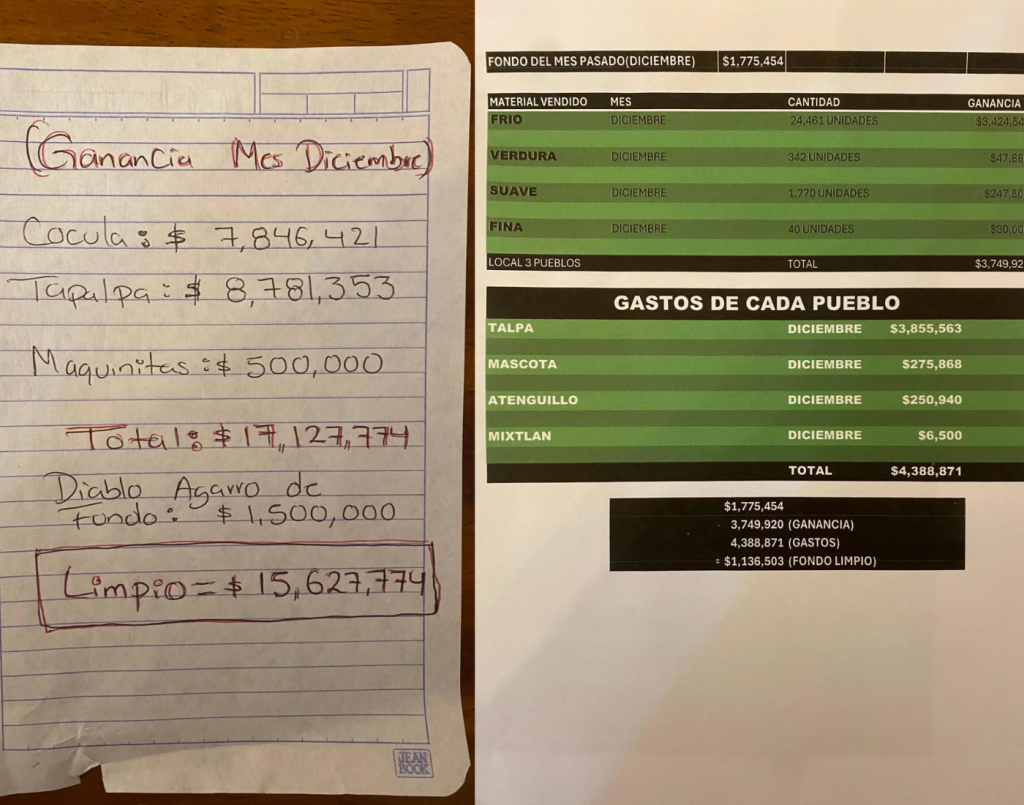 (Ganancia Mes Diciembre)
Cocula: $ 7,846,421
Tapalpa: $ 8,781,353
Maquinitas: $ 500,000
Total: $ 17,127,774
Diablo Agarro de
Fondo: $ 1,500,000
Limpio = $ 15,627,774
JEAN
BOOK
FONDO DEL MES PASADO(DICIEMBRE) $1,775,454
MATERIAL VENDIDO MES CANTIDAD GANANCIA
FRIO DICIEMBRE 24,461 UNIDADES $3,424,54
VERDURA DICIEMBRE 342 UNIDADES $47,88
SUAVE DICIEMBRE 1,770 UNIDADES $247,80
FINA DICIEMBRE 40 UNIDADES $30,00
LOCAL 3 PUEBLOS TOTAL $3,749,92
GASTOS DE CADA PUEBLO
TALPA DICIEMBRE $3,855,563
MASCOTA DICIEMBRE $275,868
ATENGUILLO DICIEMBRE $250,940
MIXTLAN DICIEMBRE $6,500
TOTAL $4,388,871
$1,775,454
3,749,920 (GANANCIA)
4,388,871 (GASTOS)
= $1,136,503 (FONDO LIMPIO)